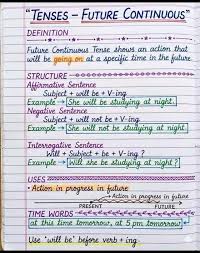 "TENSES – FUTURE CONTINUOUS"
DEFINITION
Future Continuous Tense shows an action that
will be going on at a specific time in the future.
STRUCTURE
Affirmative Sentence
Subject + will be + V-ing
Example → She will be studying at night.
Negative Sentence
Subject + will not be + V-ing
Example → She will not be studying at night.
Interrogative Sentence
Will + Subject + be + V-ing ?
Example → Will she be studying at night ?
USES
- Action in progress in future
Action in progress in future
PRESENT FUTURE
TIME WORDS
at this time tomorrow, at 5 pm tomorrow
Use 'will be' before verb + ing